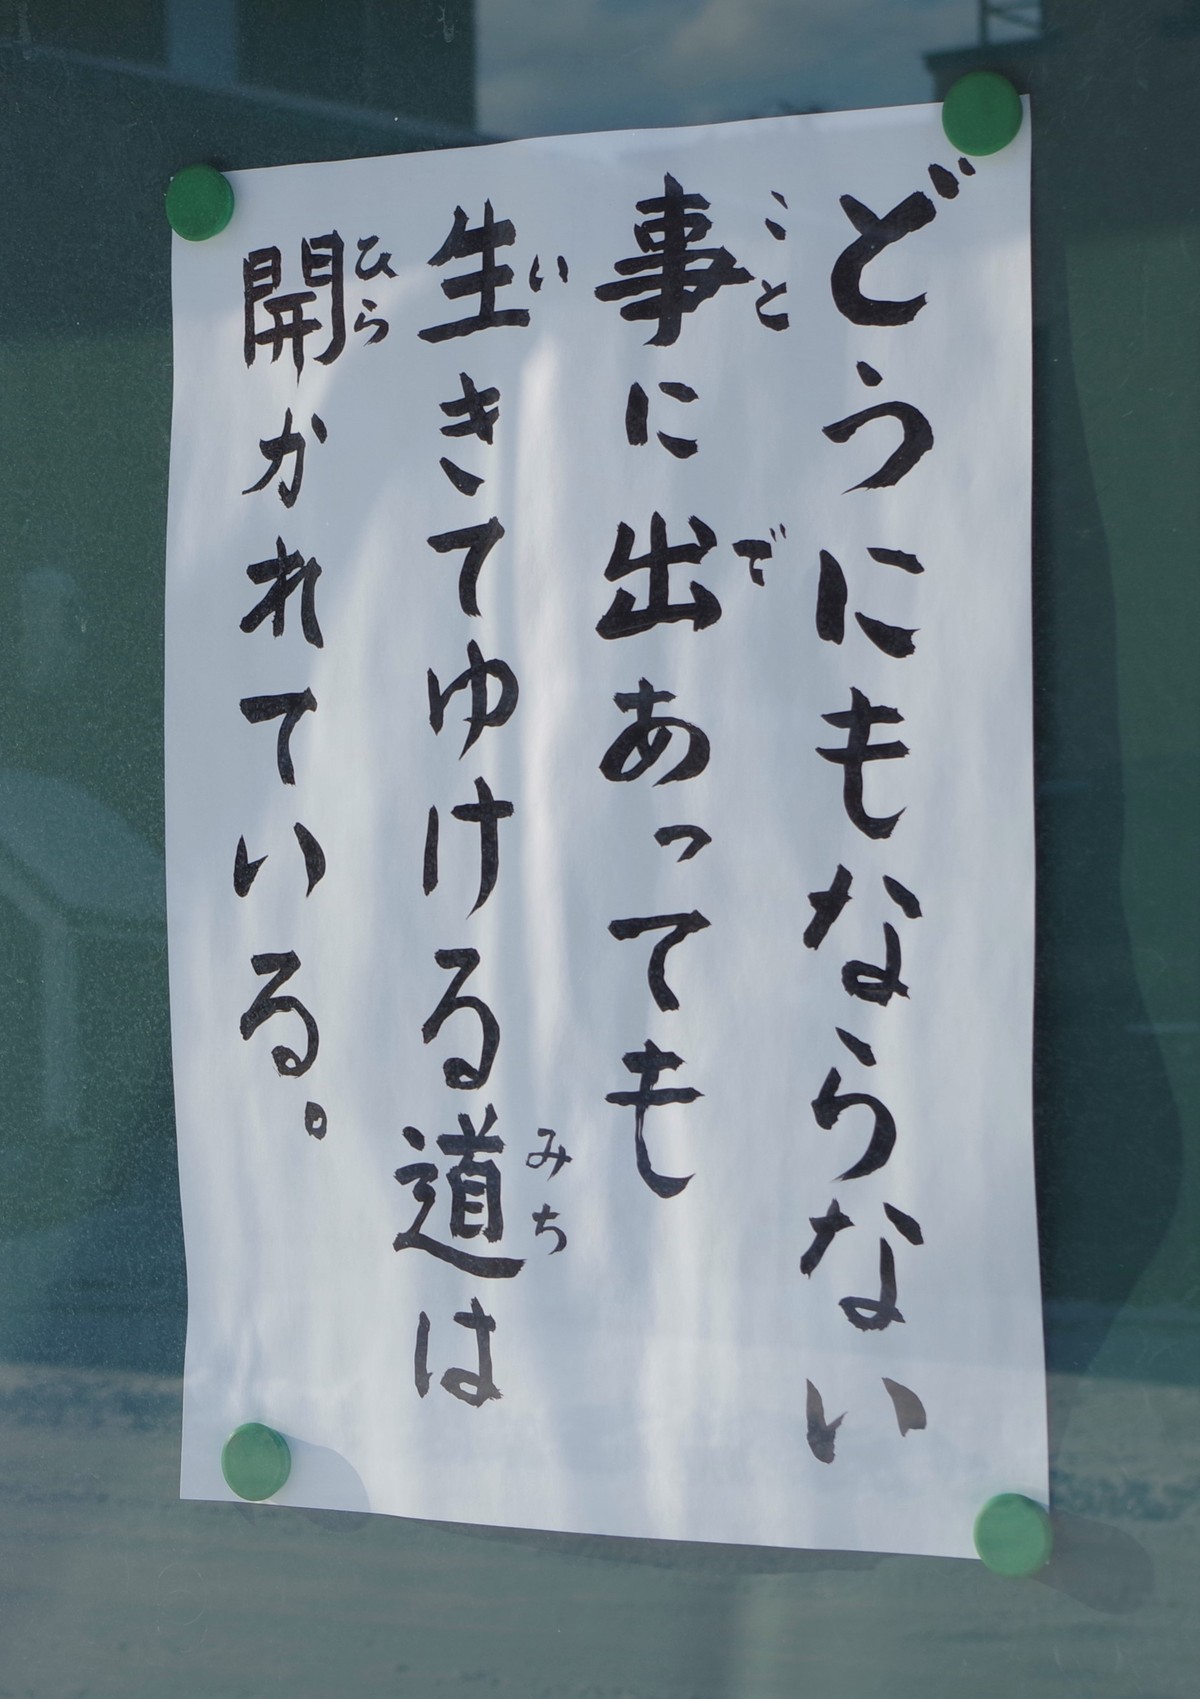 どうにもならない
事に出あっても
生きてゆける道は
開かれている。
こと
で
い
みち
ひら